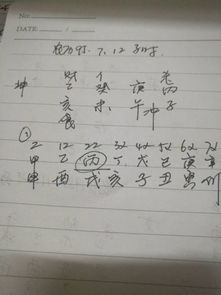 No:
DATE: / /
农历 7.12 子时
财 个 老
坤 己 癸 庚 丙
亥 未 午 冲 子
食
①
2 12 22 32 42 52 62 72
甲 乙 丙 丁 戊 己 庚 辛
申 酉 戌 亥 子 丑 寅 卯